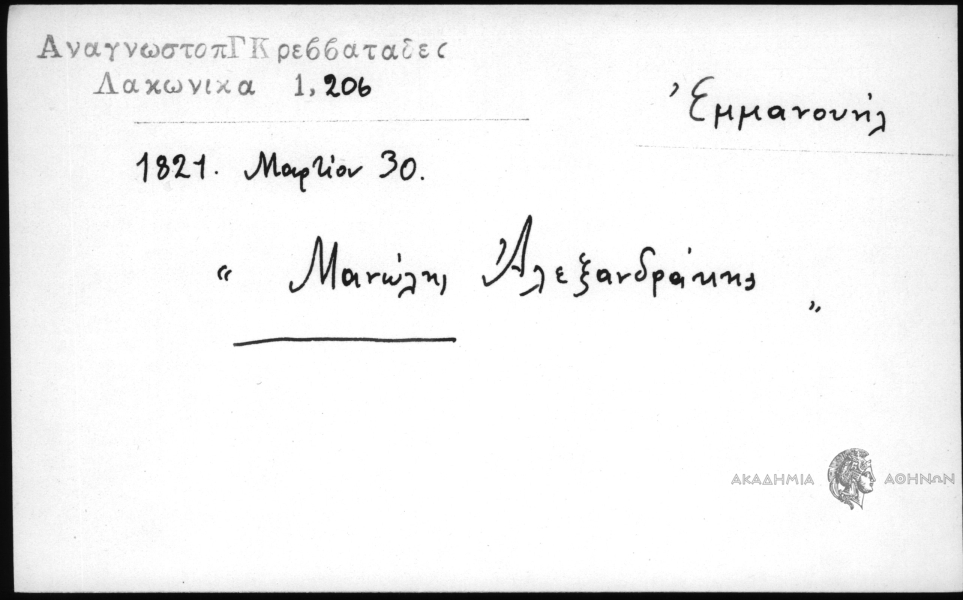 ΑναγνωστοπΓΚρεββαταδες
Λακωνικα 1, 206
Ἐμμανουήλ
1821. Μαρτίου 30.
“ Μανώλης Ἀλεξανδράκης „
ΑΚΑΔΗΜΙΑ ΑΘΗΝΩΝ